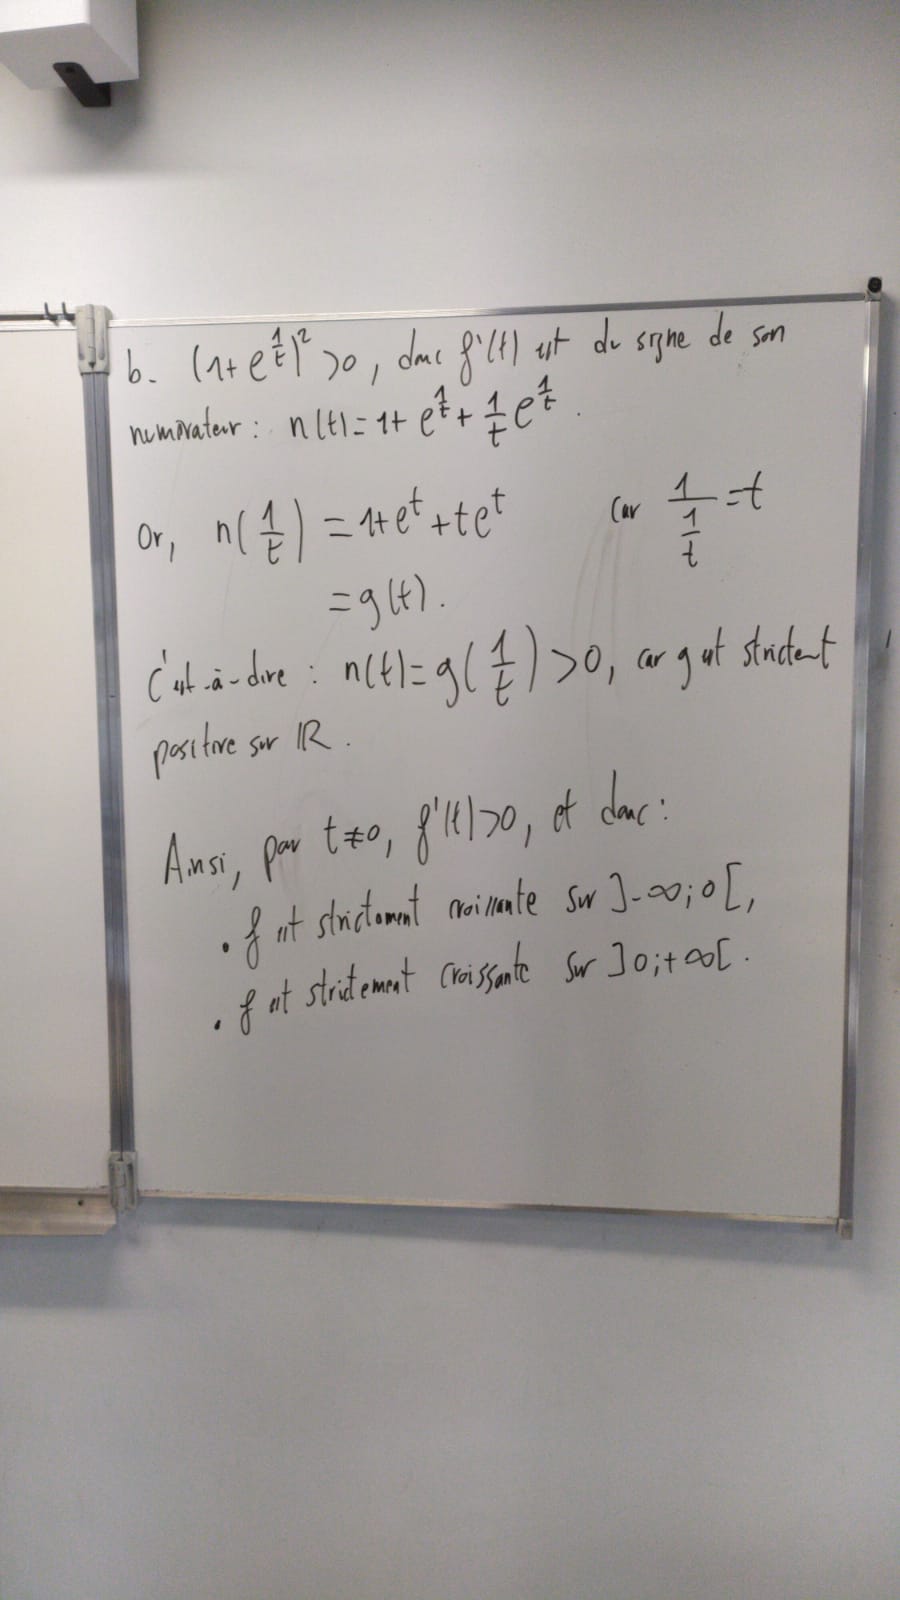 b. (1+e^{1/t})² >0, donc f'(t) est du signe de son
numérateur : n(t)=1+ e^{1/t} + 1/t e^{1/t}.
Or, n(1/t) = 1+e^t + te^t car 1/(1/t) = t
= g(t).
C'est-à-dire : n(t)=g(1/t)>0, car g est strictent
positive sur ℝ.
Ainsi, pour t≠0, f'(t)>0, et donc :
• f est strictement croissante sur ]-∞;0[,
• f est strictement croissante sur ]0;+∞[.